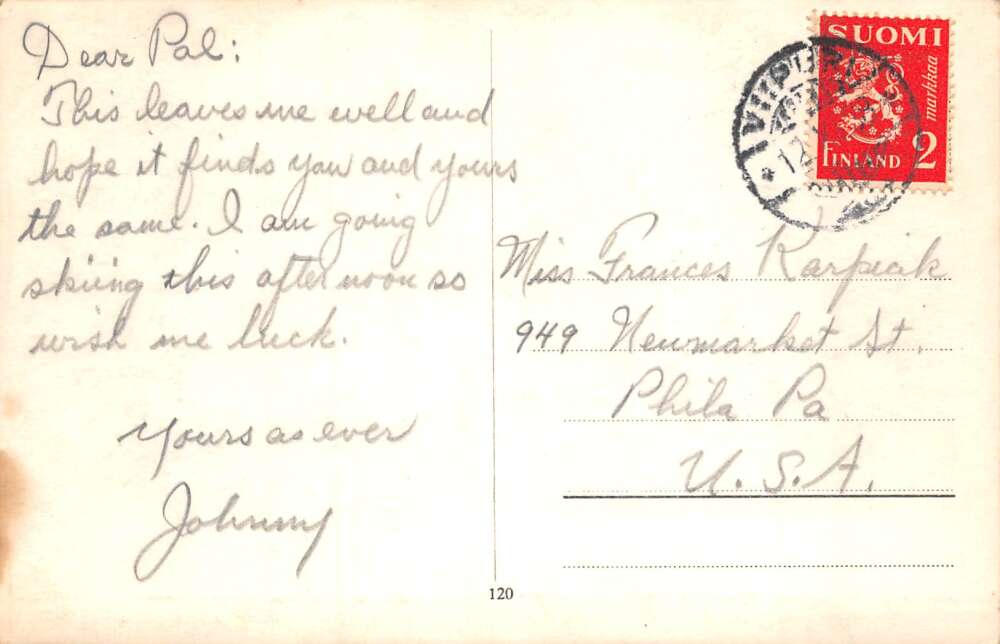 Dear Pal:
This leaves me well and
hope it finds you and yours
the same. I am going
skiing this after noon so
wish me luck.
Yours as ever
Johnny
SUOMI
markkaa
FINLAND 2
VIIPURI
Miss Frances Karpiak
949 Newmarket St.
Phila Pa
U.S.A.
120